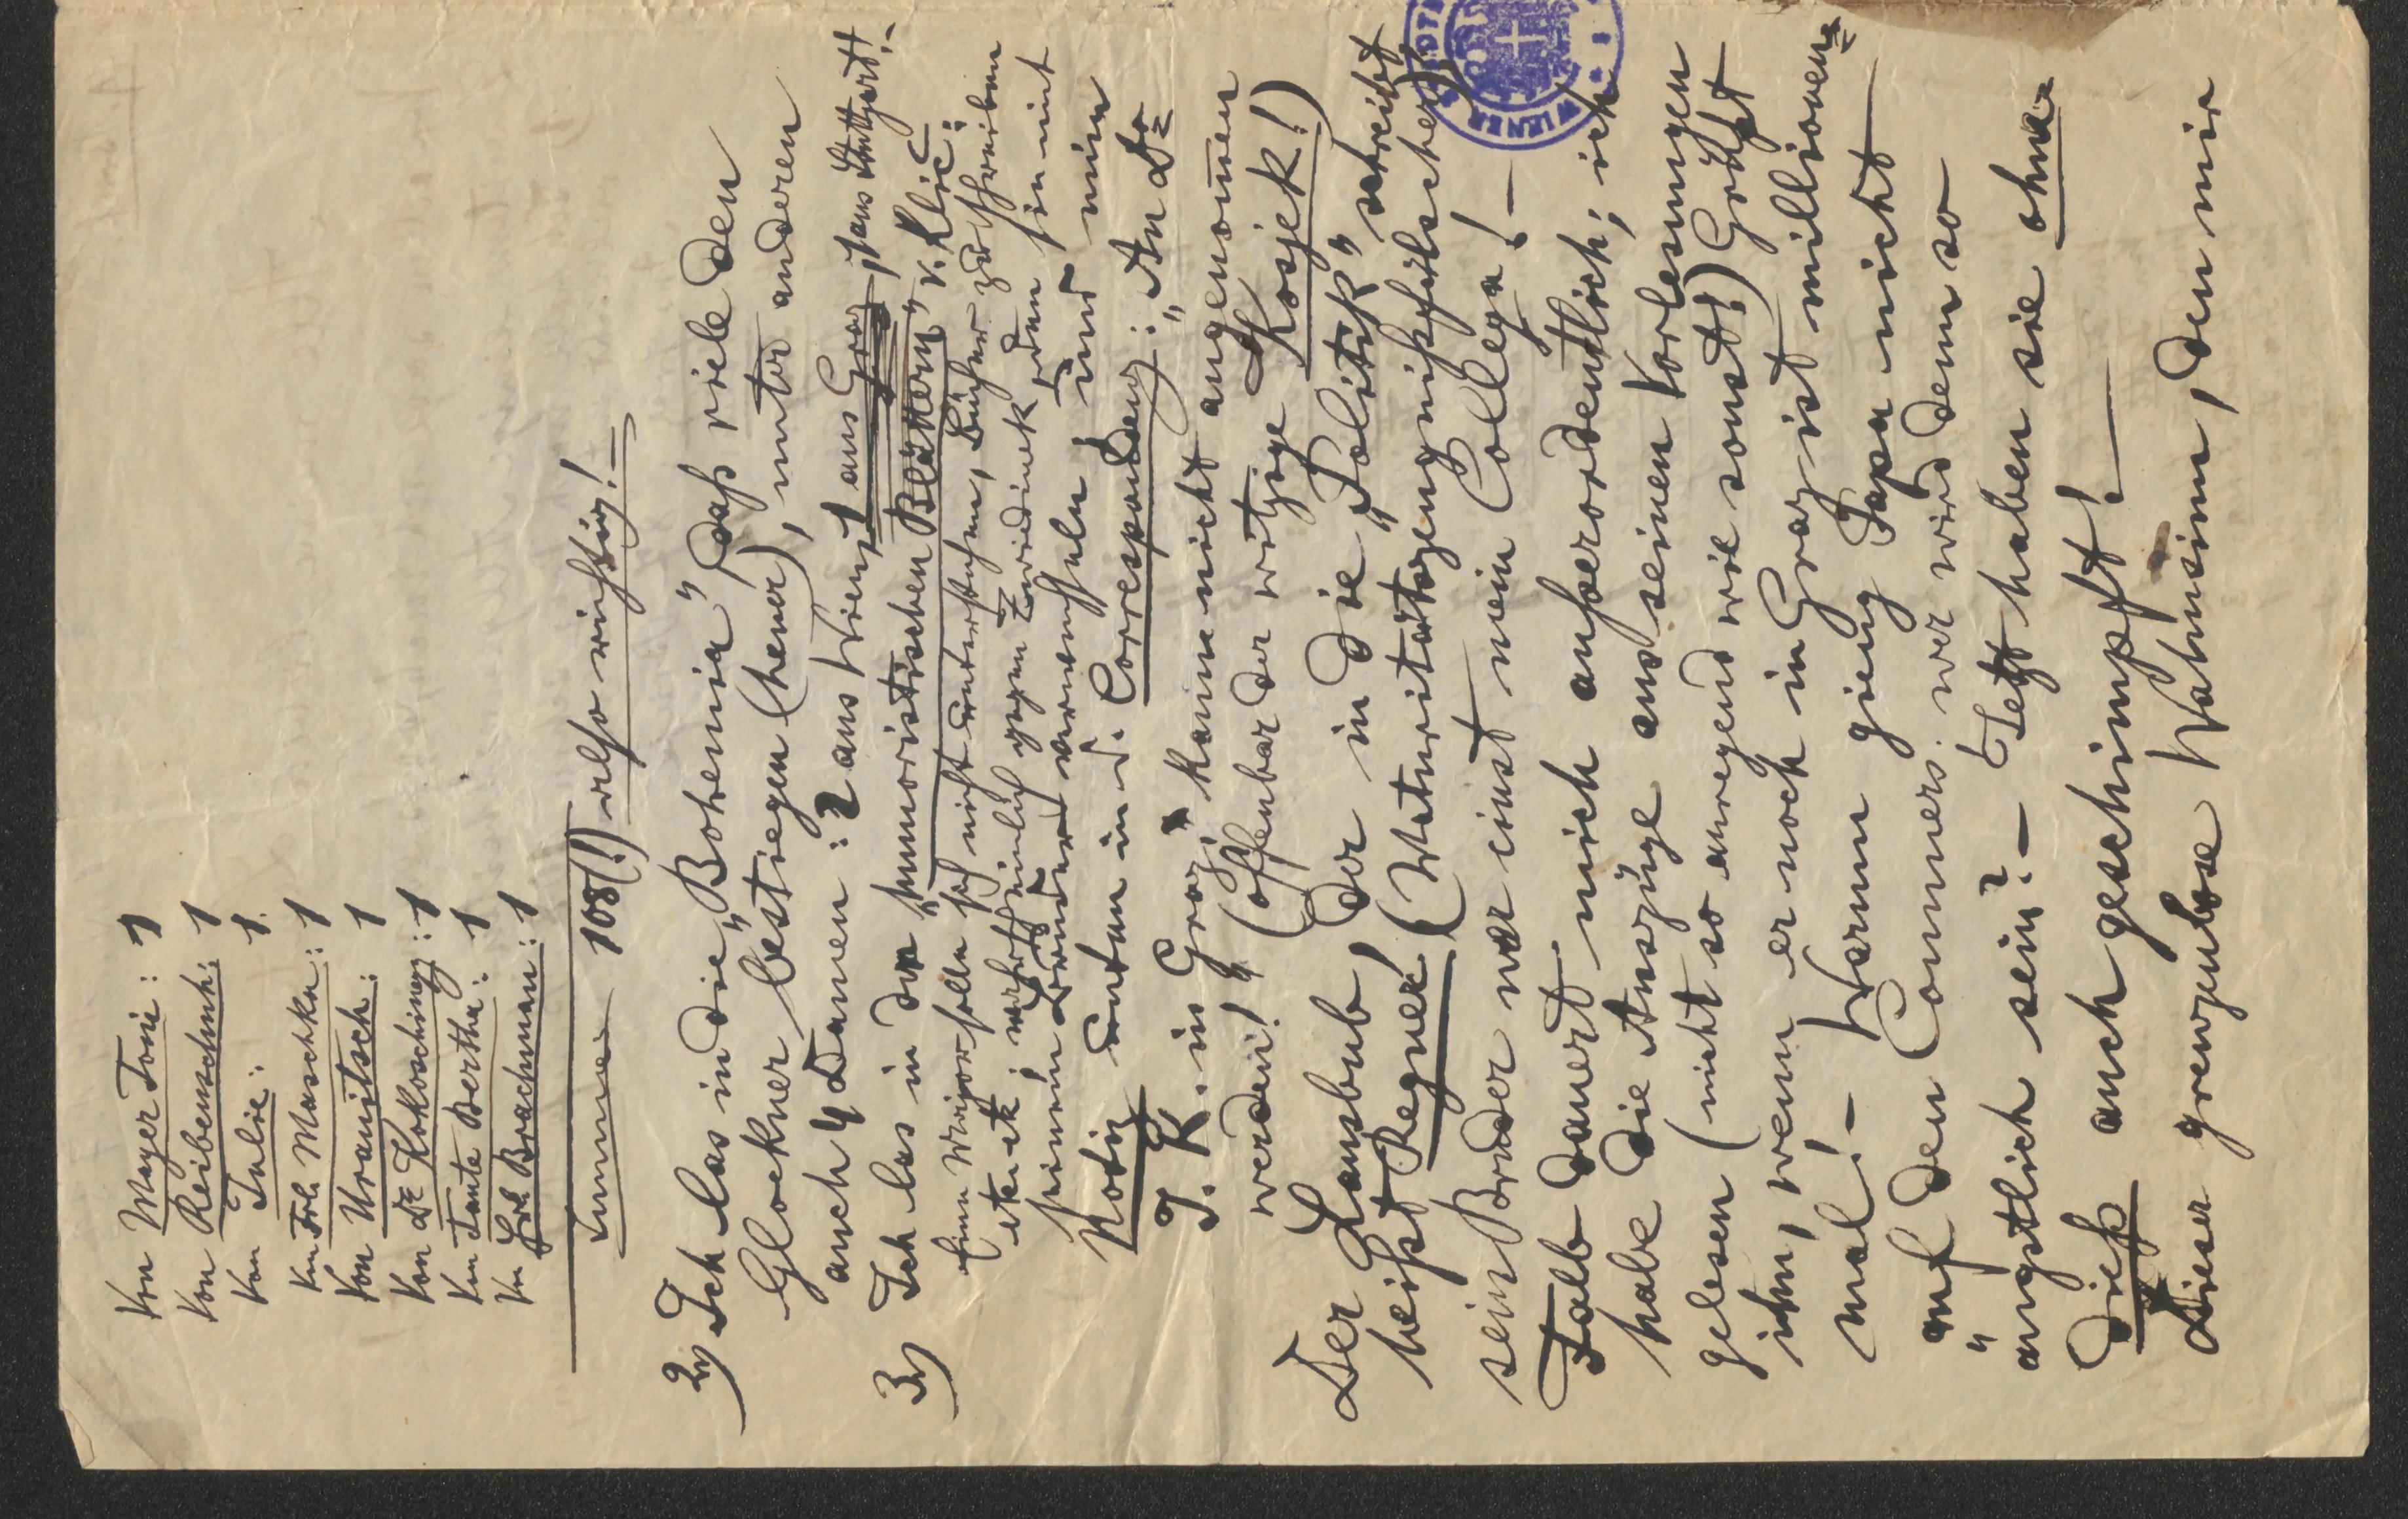 Von Mayer Toni: 1
Von Reibenschuh: 1
Von Julie: 1.
Von Frl. Maschka: 1
Von Uranitsch: 1
Von Dr Kokoschinegg: 1
Von Tante Bertha: 1
Von Frl. Brachman: 1
Summe 108(!) also richtig! –
2) Ich las in die „Bohemia" daß viele den
Glockner bestiegen (heuer), unter anderen
auch 4 Damen: 2 aus Wien, 1 aus Graz,
3) Ich las in den „humoristischen Blättern" v. Klic:
sich nicht unterstehen, Bücher zu schreiben
etk. etk; wahrscheinlich gegen
seinen Bruder und eine
Notiz unten in d. Correspondenz: „An Dr
J. K. in Graz; kann nicht angenomen
werden!" (offenbar der witzige Kosjek!)
Der Lausbub, der in die „Politik" schreibt
heißt Regner! (Maturitätszeugnißfälscher)
sein Bruder war einst mein Collega! –
Falb dauert mich außerordentlich; ich
habe die Auszüge aus seinen Vorlesungen
gelesen (nicht so anregend wie sonst!) Grüßt
ihn, wenn er noch in Graz ist millionen=
mal! – Warum gieng Papa nicht
auf den Commers. wer wird denn so
„ängstlich sein? – Jetzt haben sie ohne
dieß auch geschimpft! –
Dieser grenzenlose Wahnsinn, den wir